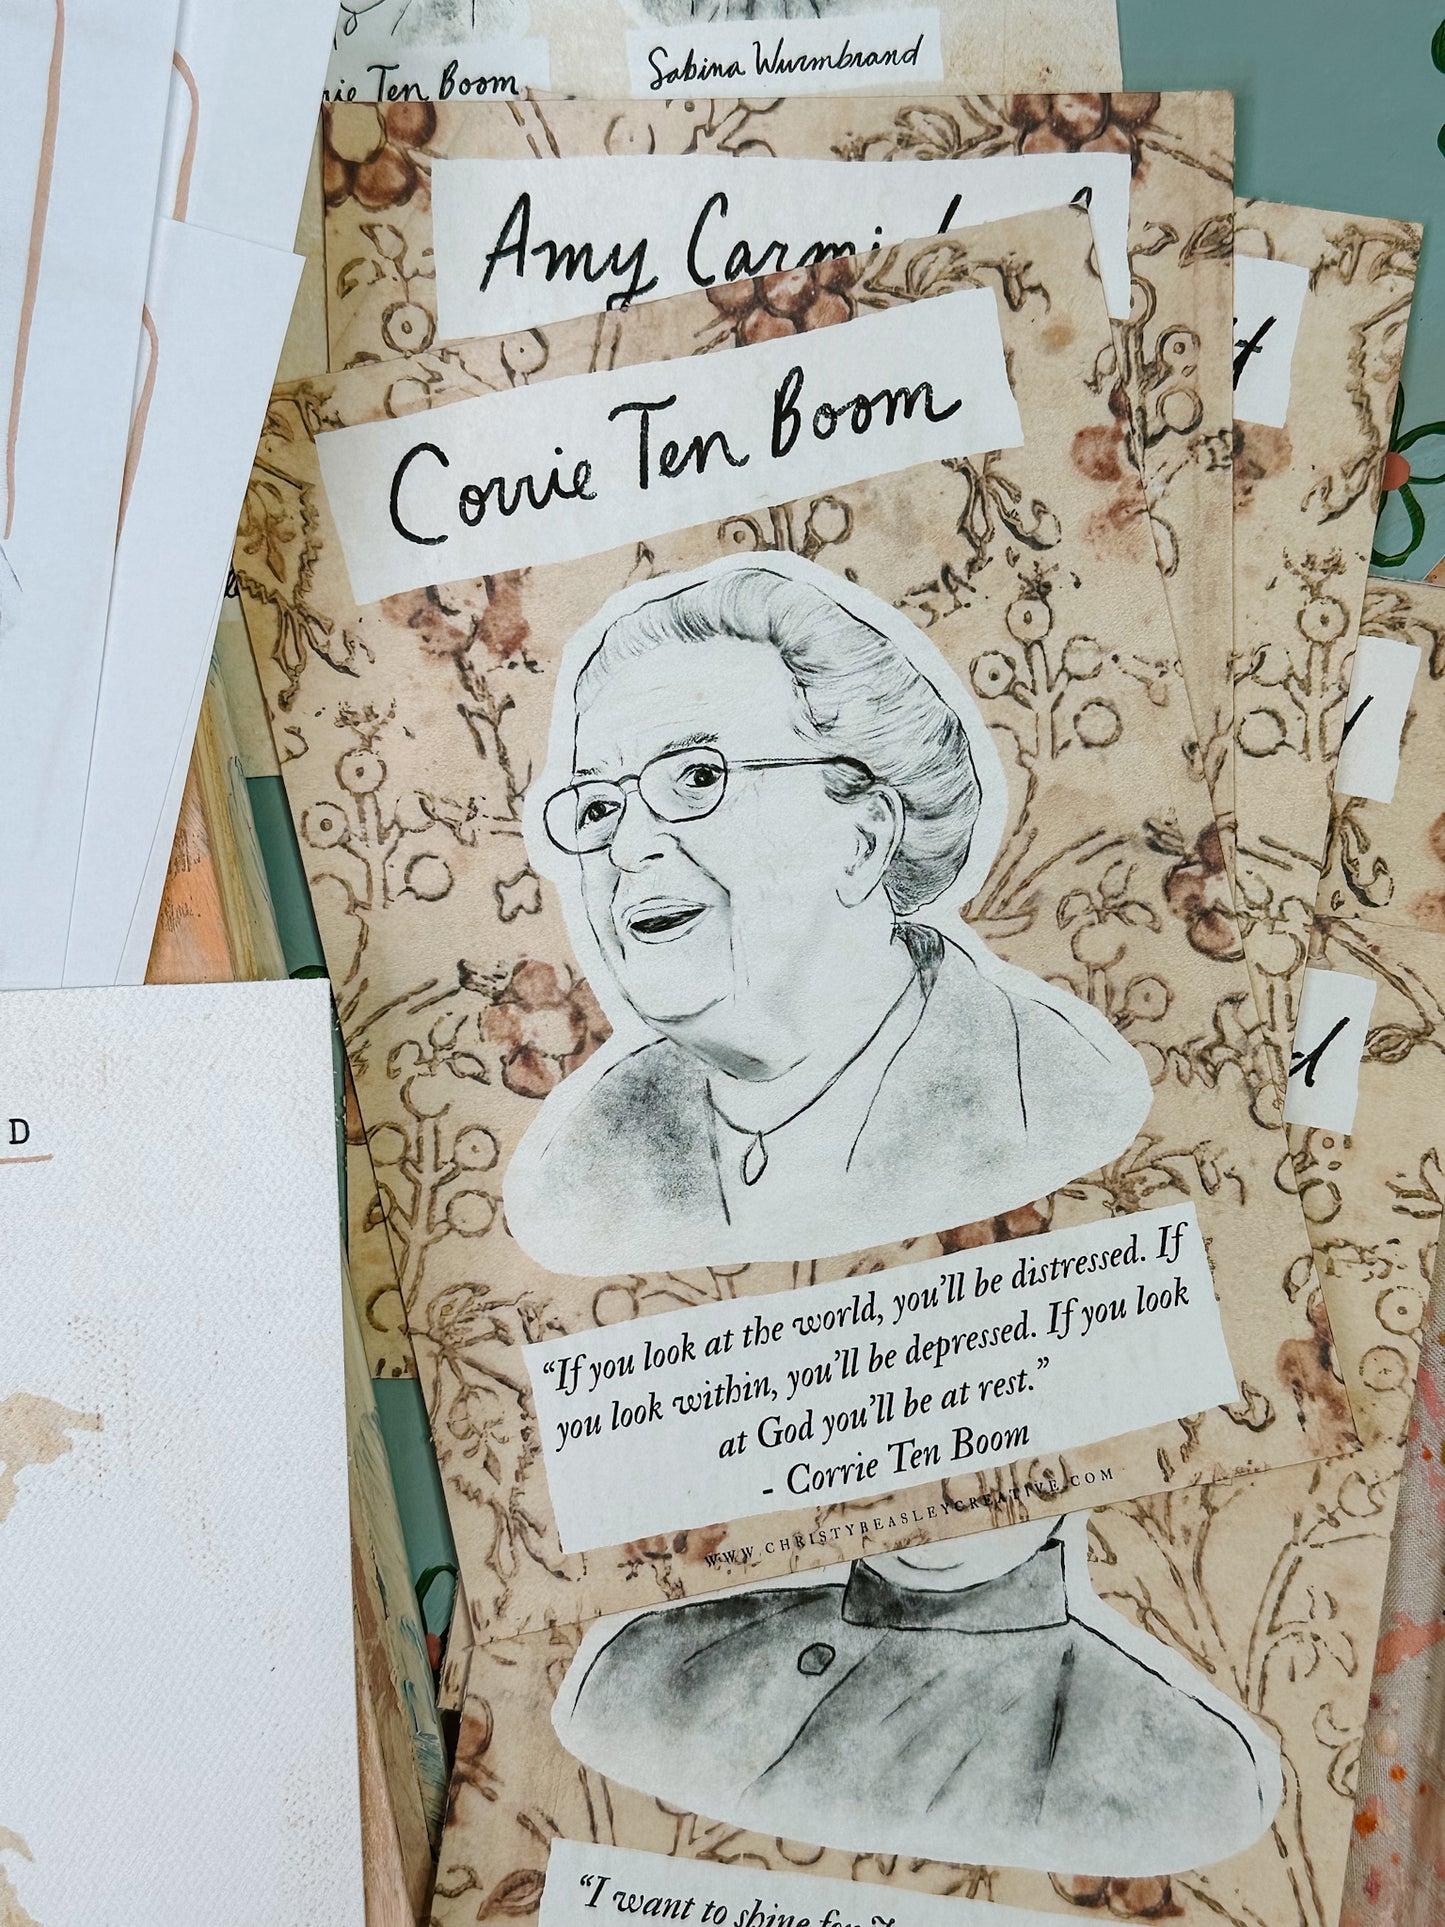 Ten Boom
Sabina Wurmbrand
Amy
Corrie Ten Boom
D
“If you look at the world, you’ll be distressed. If
you look within, you’ll be depressed. If you look
at God you’ll be at rest.”
- Corrie Ten Boom
WWW.CHRISTYBEASLEYCREATIVE.COM
“I want to shine for